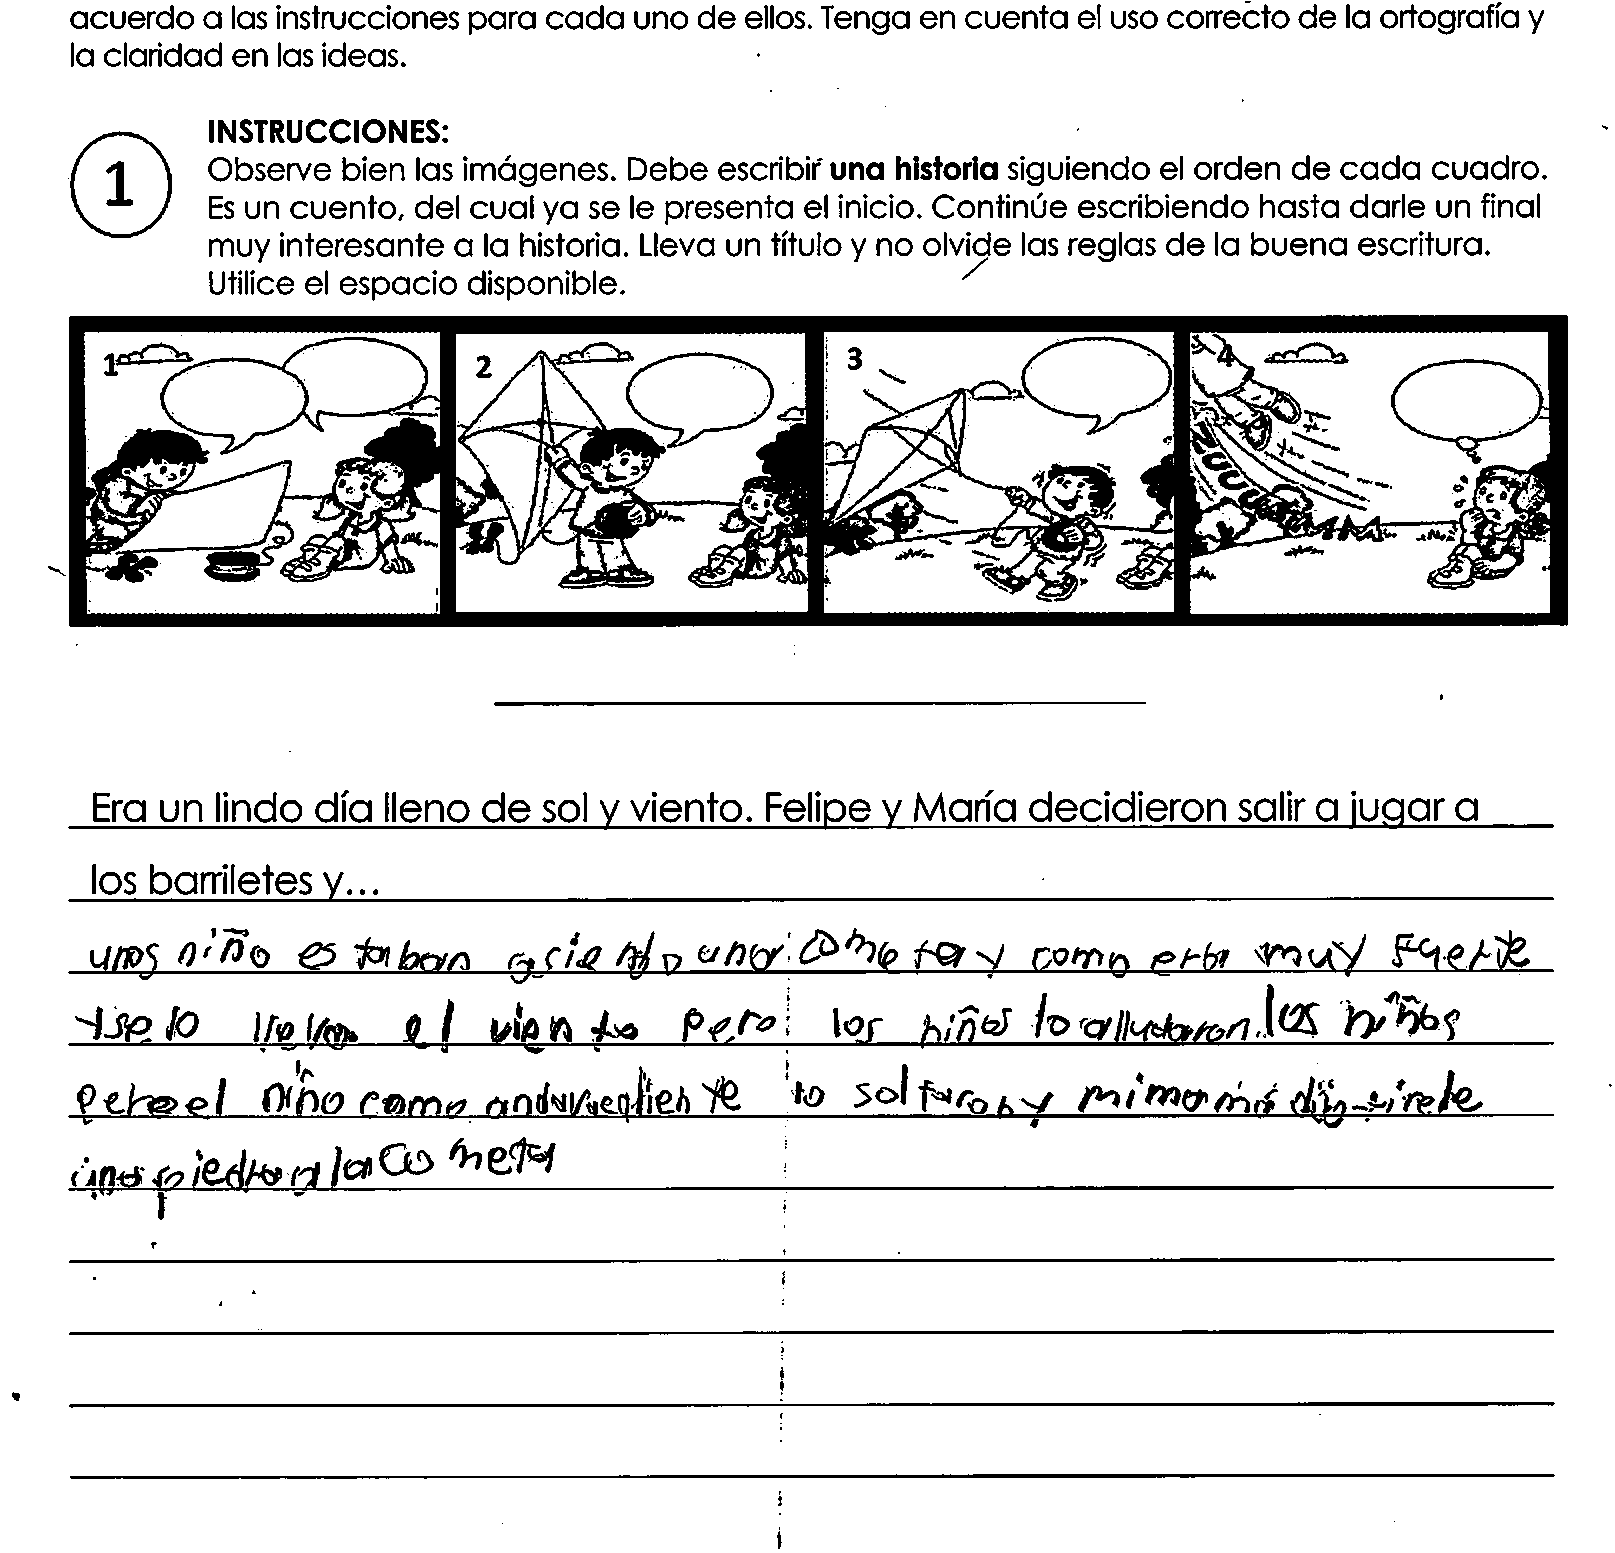 acuerdo a las instrucciones para cada uno de ellos. Tenga en cuenta el uso correcto de la ortografía y
la claridad en las ideas.
INSTRUCCIONES:
1
Observe bien las imágenes. Debe escribir una historia siguiendo el orden de cada cuadro.
Es un cuento, del cual ya se le presenta el inicio. Continúe escribiendo hasta darle un final
muy interesante a la historia. Lleva un título y no olvide las reglas de la buena escritura.
Utilice el espacio disponible.
1 2 3 4
Era un lindo día lleno de sol y viento. Felipe y María decidieron salir a jugar a
los barriletes y...
unos niño estaban asiendo una cometa y como era muy fuerte
yse lo lleva el viento pero los niños lo alludaron.los niños
pero el niño como andava lo soltaron y mi mamá dijo tirele
una piedra a la cometa